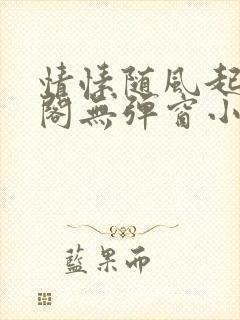 情愫随風起
閣無弹窗小
藍果而